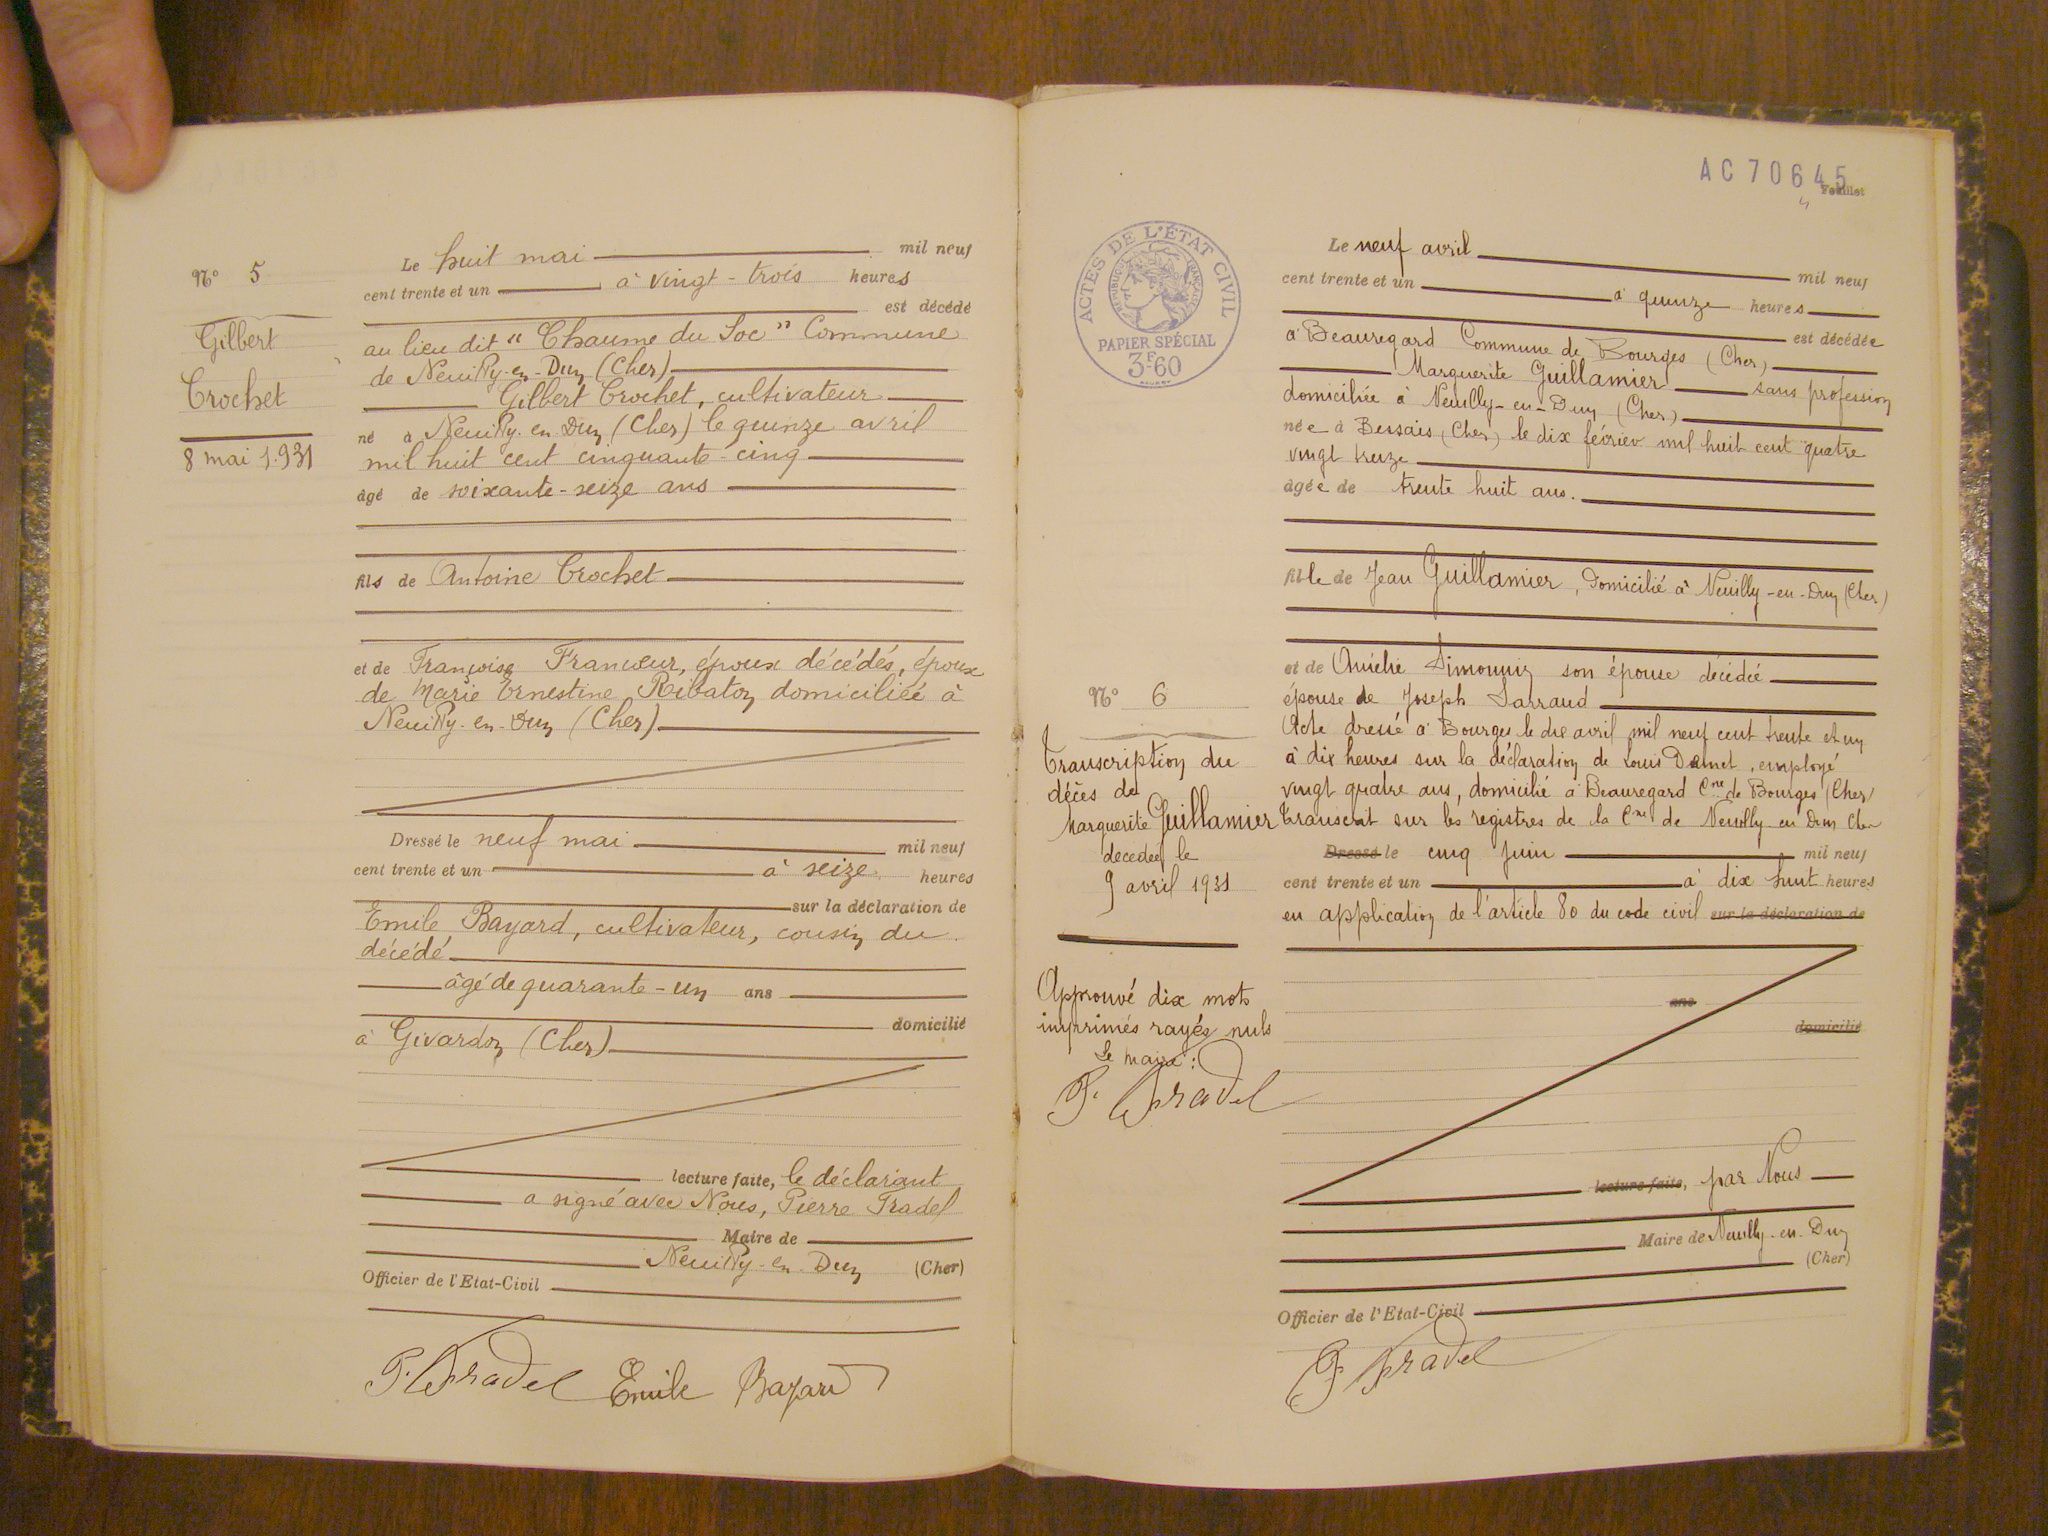 Nº 5
Gilbert
Crochet
8 mai 1.931
Le huit mai mil neuf
cent trente et un à vingt-trois heures
est décédé
au lieu dit "Chaume du Soc" Commune
de Neuilly-en-Dun (Cher)
Gilbert Crochet, cultivateur
né à Neuilly-en-Dun (Cher) le quinze avril
mil huit cent cinquante-cinq
âgé de soixante-seize ans
fils de Antoine Crochet
et de Françoise Francœur, époux décédés, époux
de Marie Ernestine Ribaton domiciliée à
Neuilly-en-Dun (Cher)
Dressé le neuf mai mil neuf
cent trente et un à seize heures
sur la déclaration de
Emile Bayard, cultivateur, cousin du
décédé
âgé de quarante-un ans
domicilié
à Givardon (Cher)
lecture faite, le déclarant
a signé avec Nous, Pierre Pradel
Maire de
Neuilly-en-Dun (Cher)
Officier de l'Etat-Civil
P. Pradel Emile Bayard
AC70645
Feuillet
ACTES DE L'ÉTAT CIVIL
RÉPUBLIQUE FRANÇAISE
PAPIER SPÉCIAL
3F.60
Nº 6
Transcription du
décès de
Marguerite Guillamier
décédée le
9 avril 1931
Approuvé dix mots
imprimés rayés nuls
Le maire :
P. Pradel
Le neuf avril mil neuf
cent trente et un à quinze heures
est décédée
à Beauregard Commune de Bourges (Cher)
Marguerite Guillamier sans profession
domiciliée à Neuilly-en-Dun (Cher)
née à Bessais (Cher) le dix février mil huit cent quatre
vingt treize
âgée de trente huit ans.
fille de Jean Guillamier, domicilié à Neuilly-en-Dun (Cher)
et de Amélie Simonnin son épouse décédée
épouse de Joseph Sarraud
Acte dressé à Bourges le dix avril mil neuf cent trente et un
à dix heures sur la déclaration de Louis Damet, employé
vingt quatre ans, domicilié à Beauregard Cne de Bourges (Cher)
Transcrit sur les registres de la Cne de Neuilly en Dun Cher
Dressé le cinq juin mil neuf
cent trente et un à dix huit heures
en application de l'article 80 du code civil sur la déclaration de
ans
domicilié
lecture faite, par Nous
Maire de Neuilly-en-Dun
(Cher)
Officier de l'Etat-Civil
P. Pradel